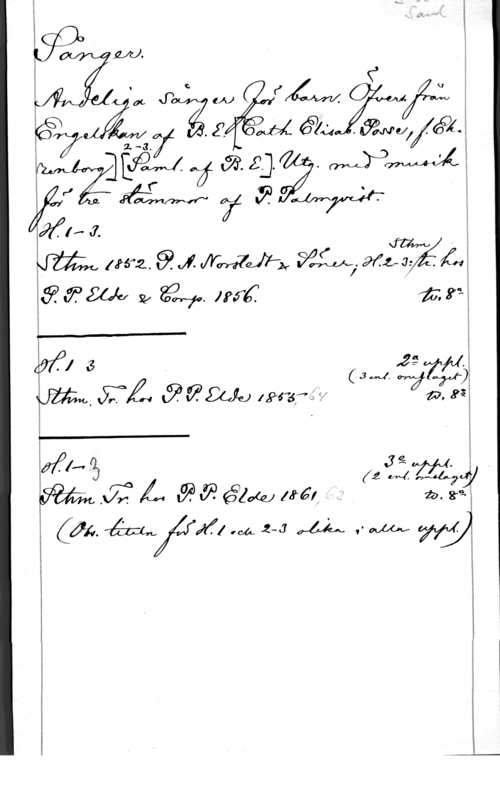 Saml
Sånger.
Andeliga sånger för barn. Öfvers. från
Engelskan af B. E. [Cath. Elisab. Posse, f. Eh-
renborg] [2-3. Saml. af B. E.] Utg. med musik
för tre stämmor af P. Palmqvist.
H. 1-3.
Sthm 1852. P. A. Norstedt & Söner; H. 2-3: Sthm, tr. hos
P. P. Elde & Comp. 1856. tv. 8º
H. 1 3 2ª uppl.
(3 enl. omslaget)
Sthm, Tr. hos P. P. Elde 1855-64 tv. 8º
H. 1-3 3ª uppl.
(2 enl. omslaget)
Sthm Tr. hos P. P. Elde 1861, 62 tv. 8º
(Obs. titeln för H. 1 och 2-3 olika i alla uppl.)